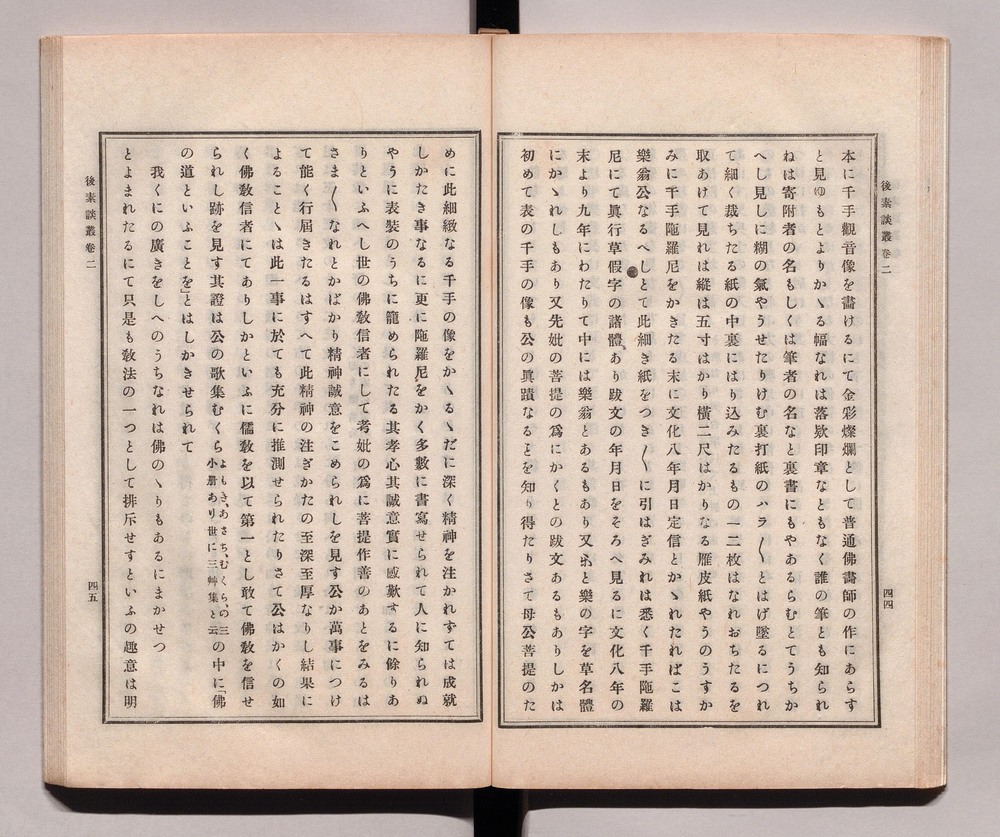 後素談叢卷二
四四
本に千手觀音像を畵けるにて金彩燦爛として普通佛畵師の作にあらす
と見ゆもとよりかゝる幅なれは落欵印章なともなく誰の筆とも知られ
ねは寄附者の名もしくは筆者の名なと裏書にもやあるらむとてうちか
へし見しに糊の氣やうせたりけむ裏打紙のハラ〱とはげ墜るにつれ
て細く裁ちたる紙の中裏にはり込みたるもの一二枚はなれおちたるを
取あけて見れは縱は五寸はかり橫二尺はかりなる雁皮紙やうのうすか
みに千手陁羅尼をかきたる末に文化八年月日定信とかゝれたればこは
樂翁公なるへしとて此細き紙をつき〱に引はぎみれは悉く千手陁羅
尼にて眞行草假字の諸體あり跋文の年月日をそろへ見るに文化八年の
末より九年にわたりて中には樂翁とあるもあり又と樂の字を草名體
にかゝれしもあり又先妣の菩提の爲にかくとの跋文あるもありしかは
初めて表の千手の像も公の眞蹟なることを知り得たりさて母公菩提のた
めに此細緻なる千手の像をかゝるゝだに深く精神を注かれすては成就
しかたき事なるに更に陁羅尼をかく多數に書寫せられて人に知られぬ
やうに表裝のうちに籠められたる其孝心其誠意實に感歎するに餘りあ
りといふへし世の佛敎信者にして考妣の爲に菩提作善のあとをみるは
さま〱なれとかばかり精神誠意をこめられしを見す公か萬事につけ
て能く行屆きたるはすへて此精神の注ぎかたの至深至厚なりし結果に
よることゝは此一事に於ても充分に推測せられたりさて公はかくの如
く佛敎信者にてありしかといふに儒敎を以て第一とし敢て佛敎を信せ
られし跡を見す其證は公の歌集むくらよもき、あさち、むくら、の三小册あり世に三艸集と云の中に「佛
の道といふことを」とはしかきせられて
我くにの廣きをしへのうちなれは佛のゝりもあるにまかせつ
とよまれたるにて只是も敎法の一つとして排斥せすといふの趣意は明
後素談叢卷二
四五